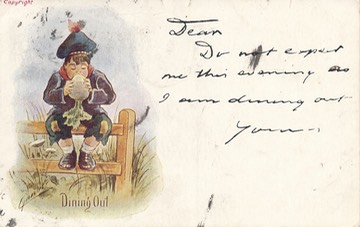 Copyright
Dear
Do not expect
me this evening as
I am dining out
Yours
Dining Out